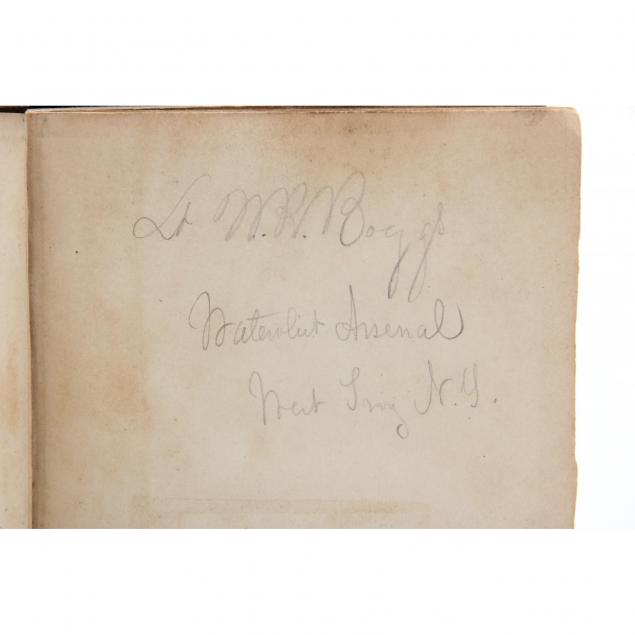 Lt W. R. Boggs
Watervliet Arsenal
West Troy N.Y.